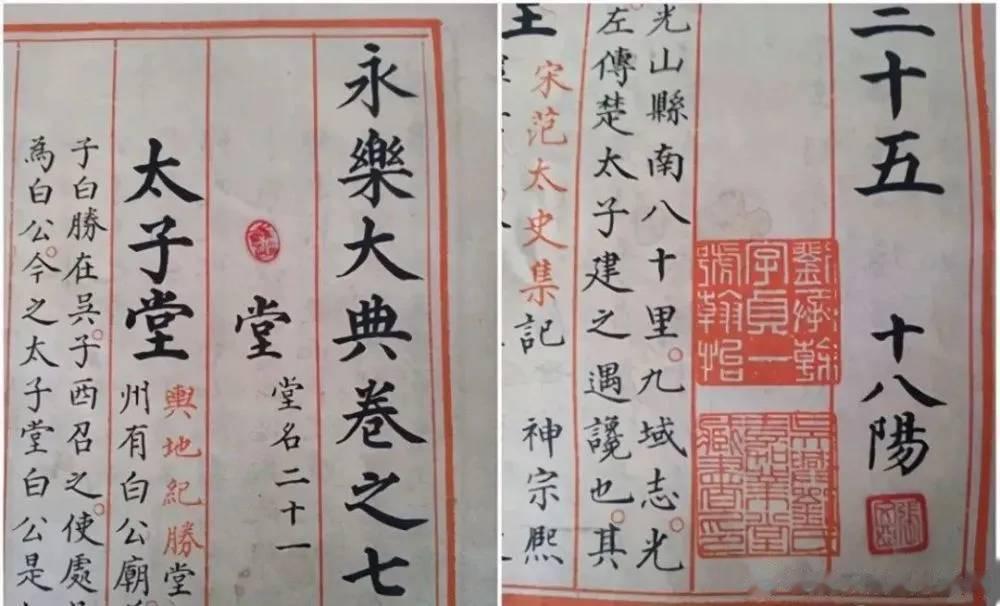 永樂大典卷之七
堂 堂名二十一
太子堂 輿地紀勝堂
州有白公廟
子白勝在吳。子西召之。使處
為白公。今之太子堂白公是
二十五 十八陽
劉承幹
字貞一
號翰怡
吳興劉氏
嘉業堂
藏書印
光山縣南八十里。九域志。光
左傳楚太子建之遇讒也。其
宋范太史集記 神宗熙